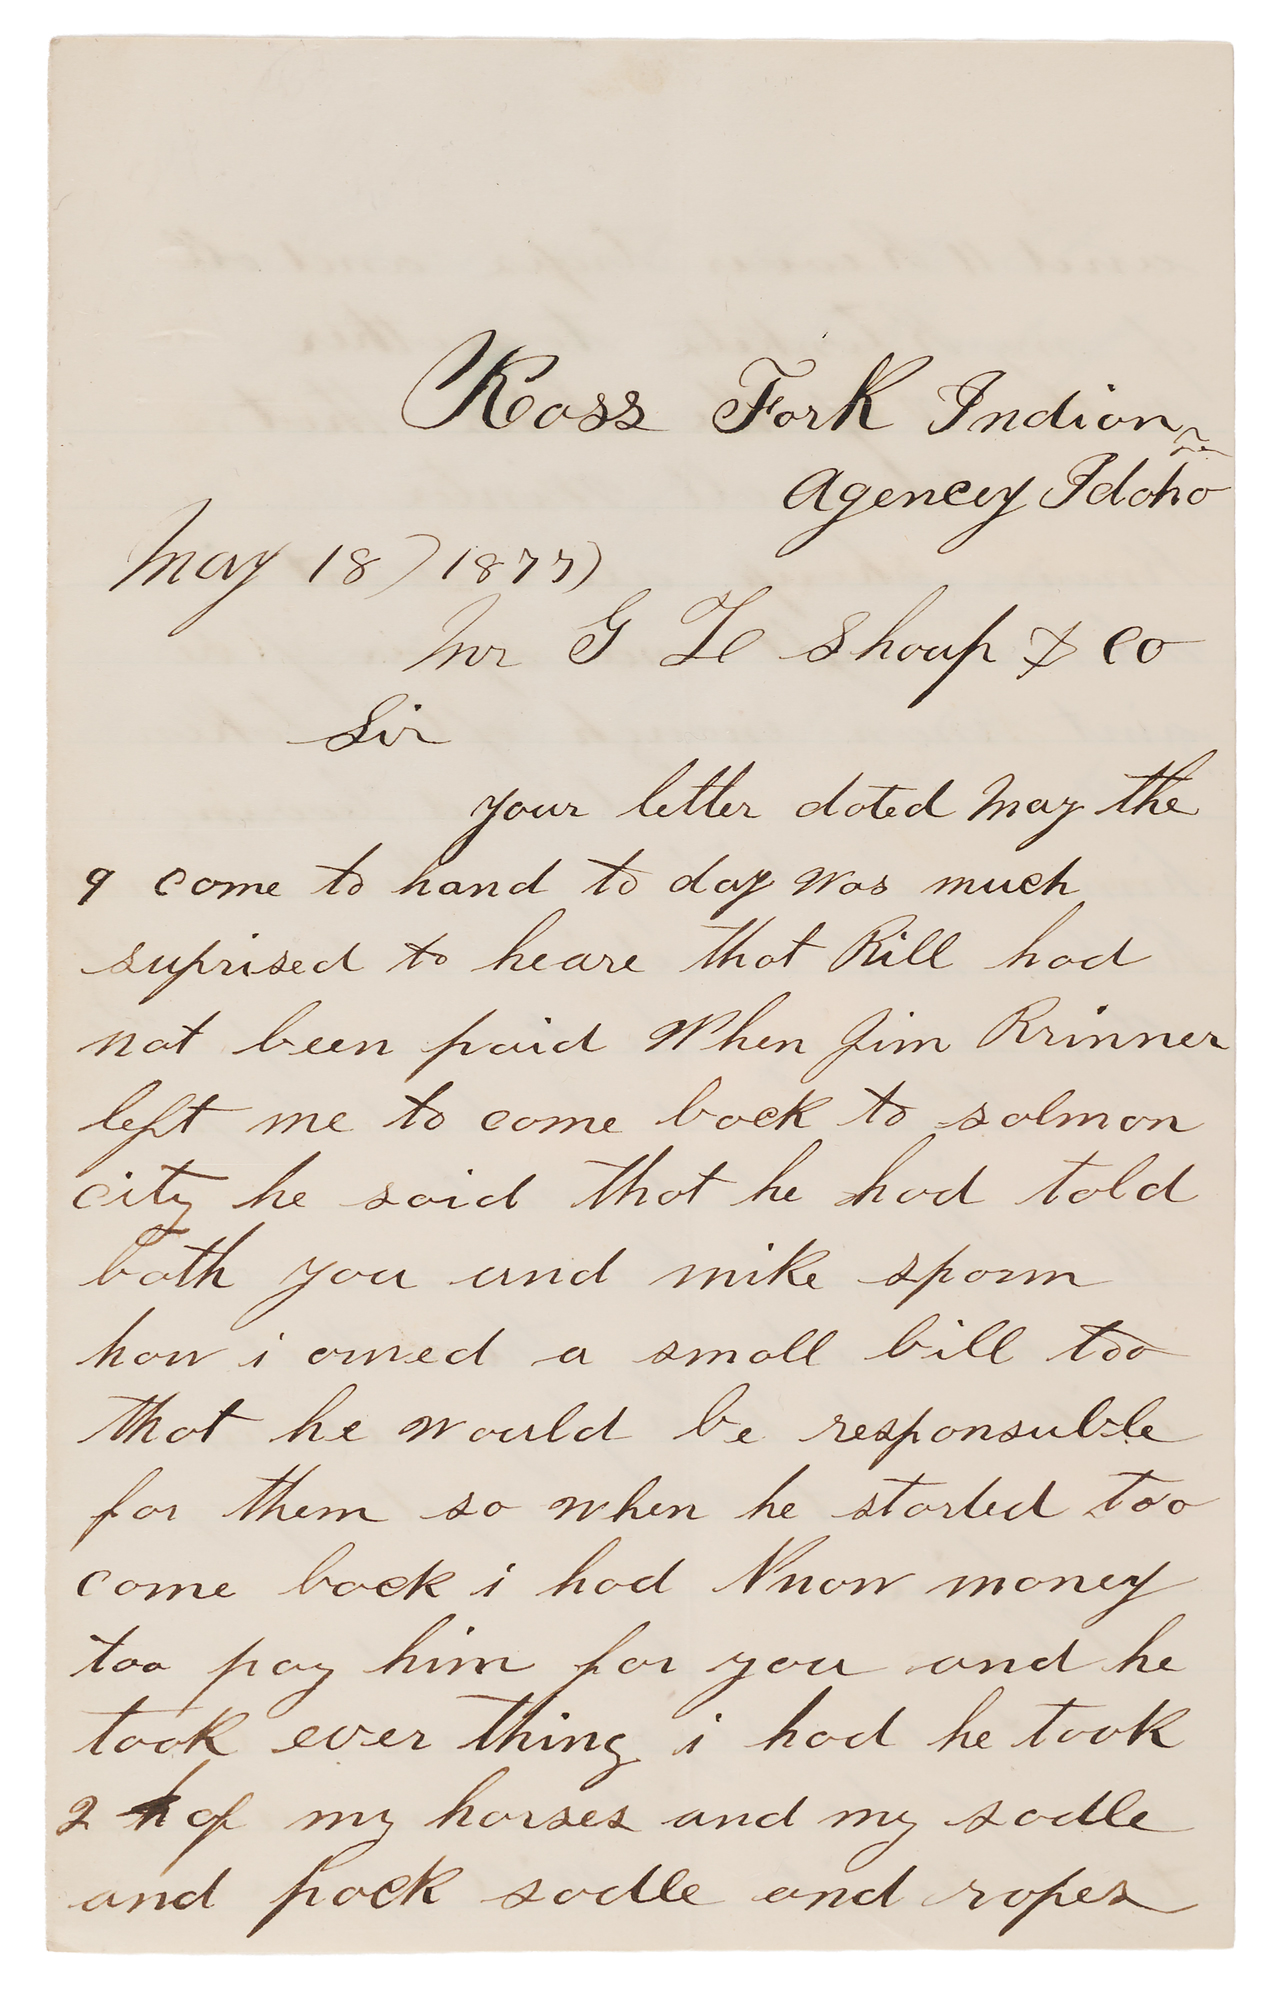 Ross Fork Indian
Agencey Idaho
May 18) 1877)
Mr G L Shoup & co
Sir
your letter dated May the
9 come to hand to day was much
suprised to heare that Bill had
not been paid When Jim Brinner
left me to come back to salmon
city he said that he had told
both you and mike sporm
how i owed a small bill too
that he would be responsuble
for them so when he started too
come back i had Nnow money
too pay him for you and he
took ever thing i had he took
2 of my horses and my sadle
and pack sadle and ropes